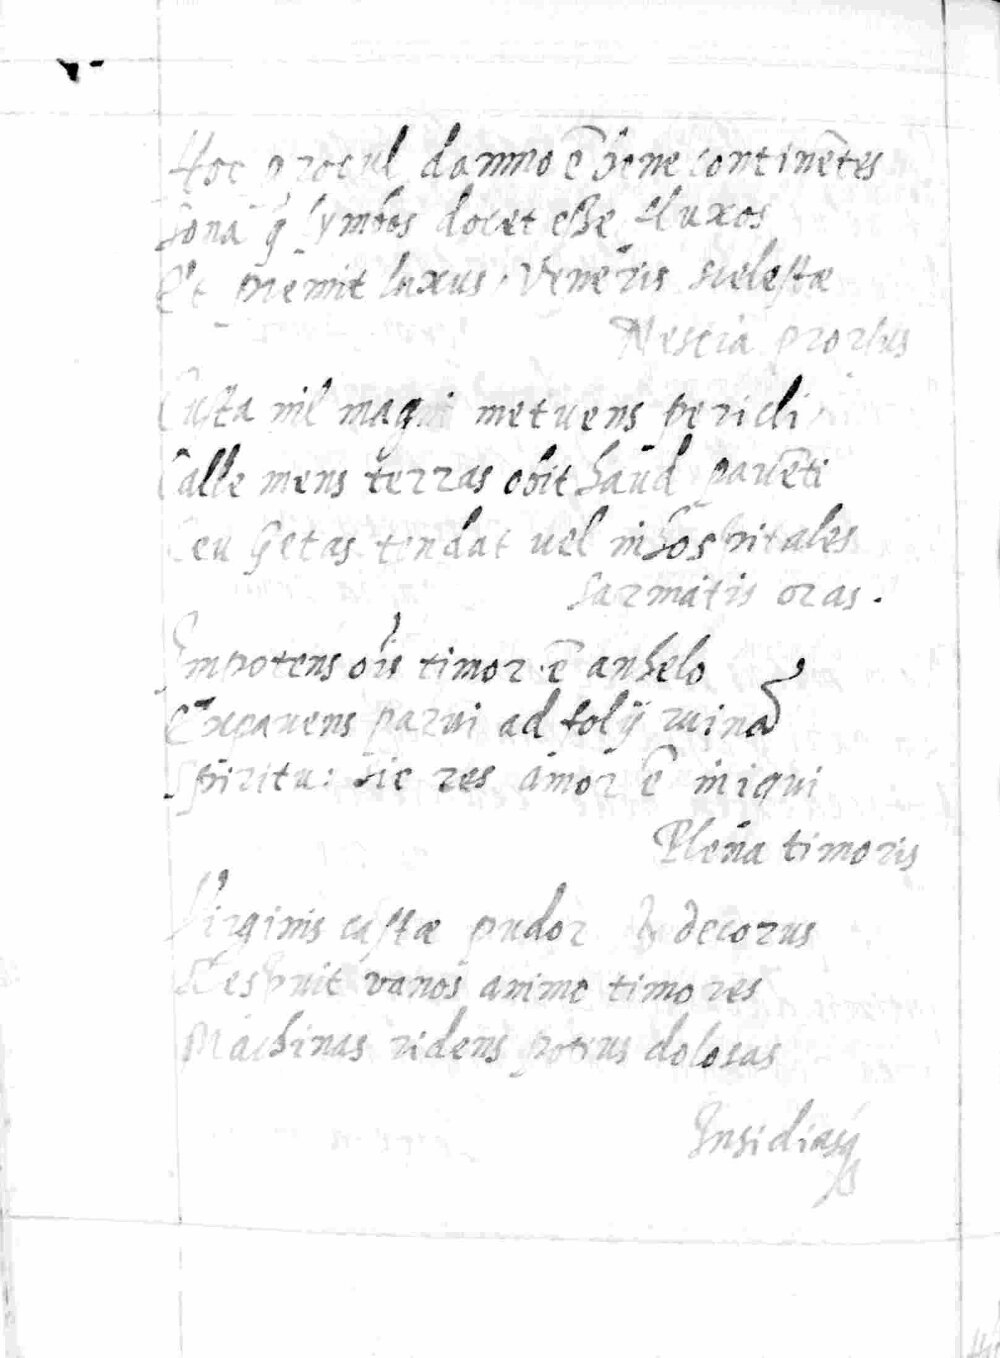 Hoc procul damno ē bene continētes
Zona q̄ lymbos docet eße fluxos
Et premit luxus Veneris scelestæ
Nescia prorsus
Casta nil magni metuens pericli
Calle mens terras obit haud pavēti
Ceu Getas tendat vel inhospitales
Sarmatis oras.
Impotens oris timor ē anhelo
Expavens parvi ad folij ruinā
Spiritu: sic res amor ē iniqui
Plena timoris
Virginis castæ pudor & decorus
Respuit vanos animo timores
Machinas ridens potius dolosas
Insidiasq;